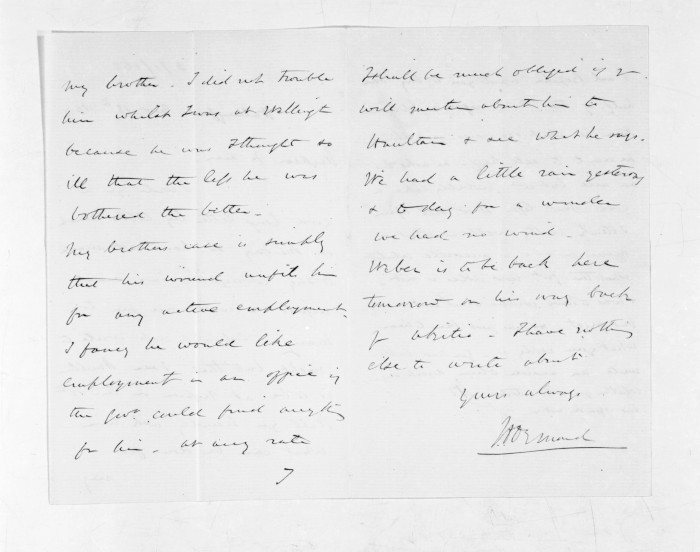 my brother. I did not trouble
him whilst I was at Wellingtn
because he was I thought so
ill that the less he was
bothered the better.
My brothers case is simply
that his wound unfits him
for any active employment.
I fancy he would like
employment in an office if
the govt. could find anything
for him. at any rate
I shall be much obliged if you
will mention about him to
Haultain & see what he says.
We had a little rain yesterday
& to day for a wonder
we had no wind.
Weber is to be back here
tomorrow on his way back
I have nothing
else to write about
yours always
J D Ormond
7